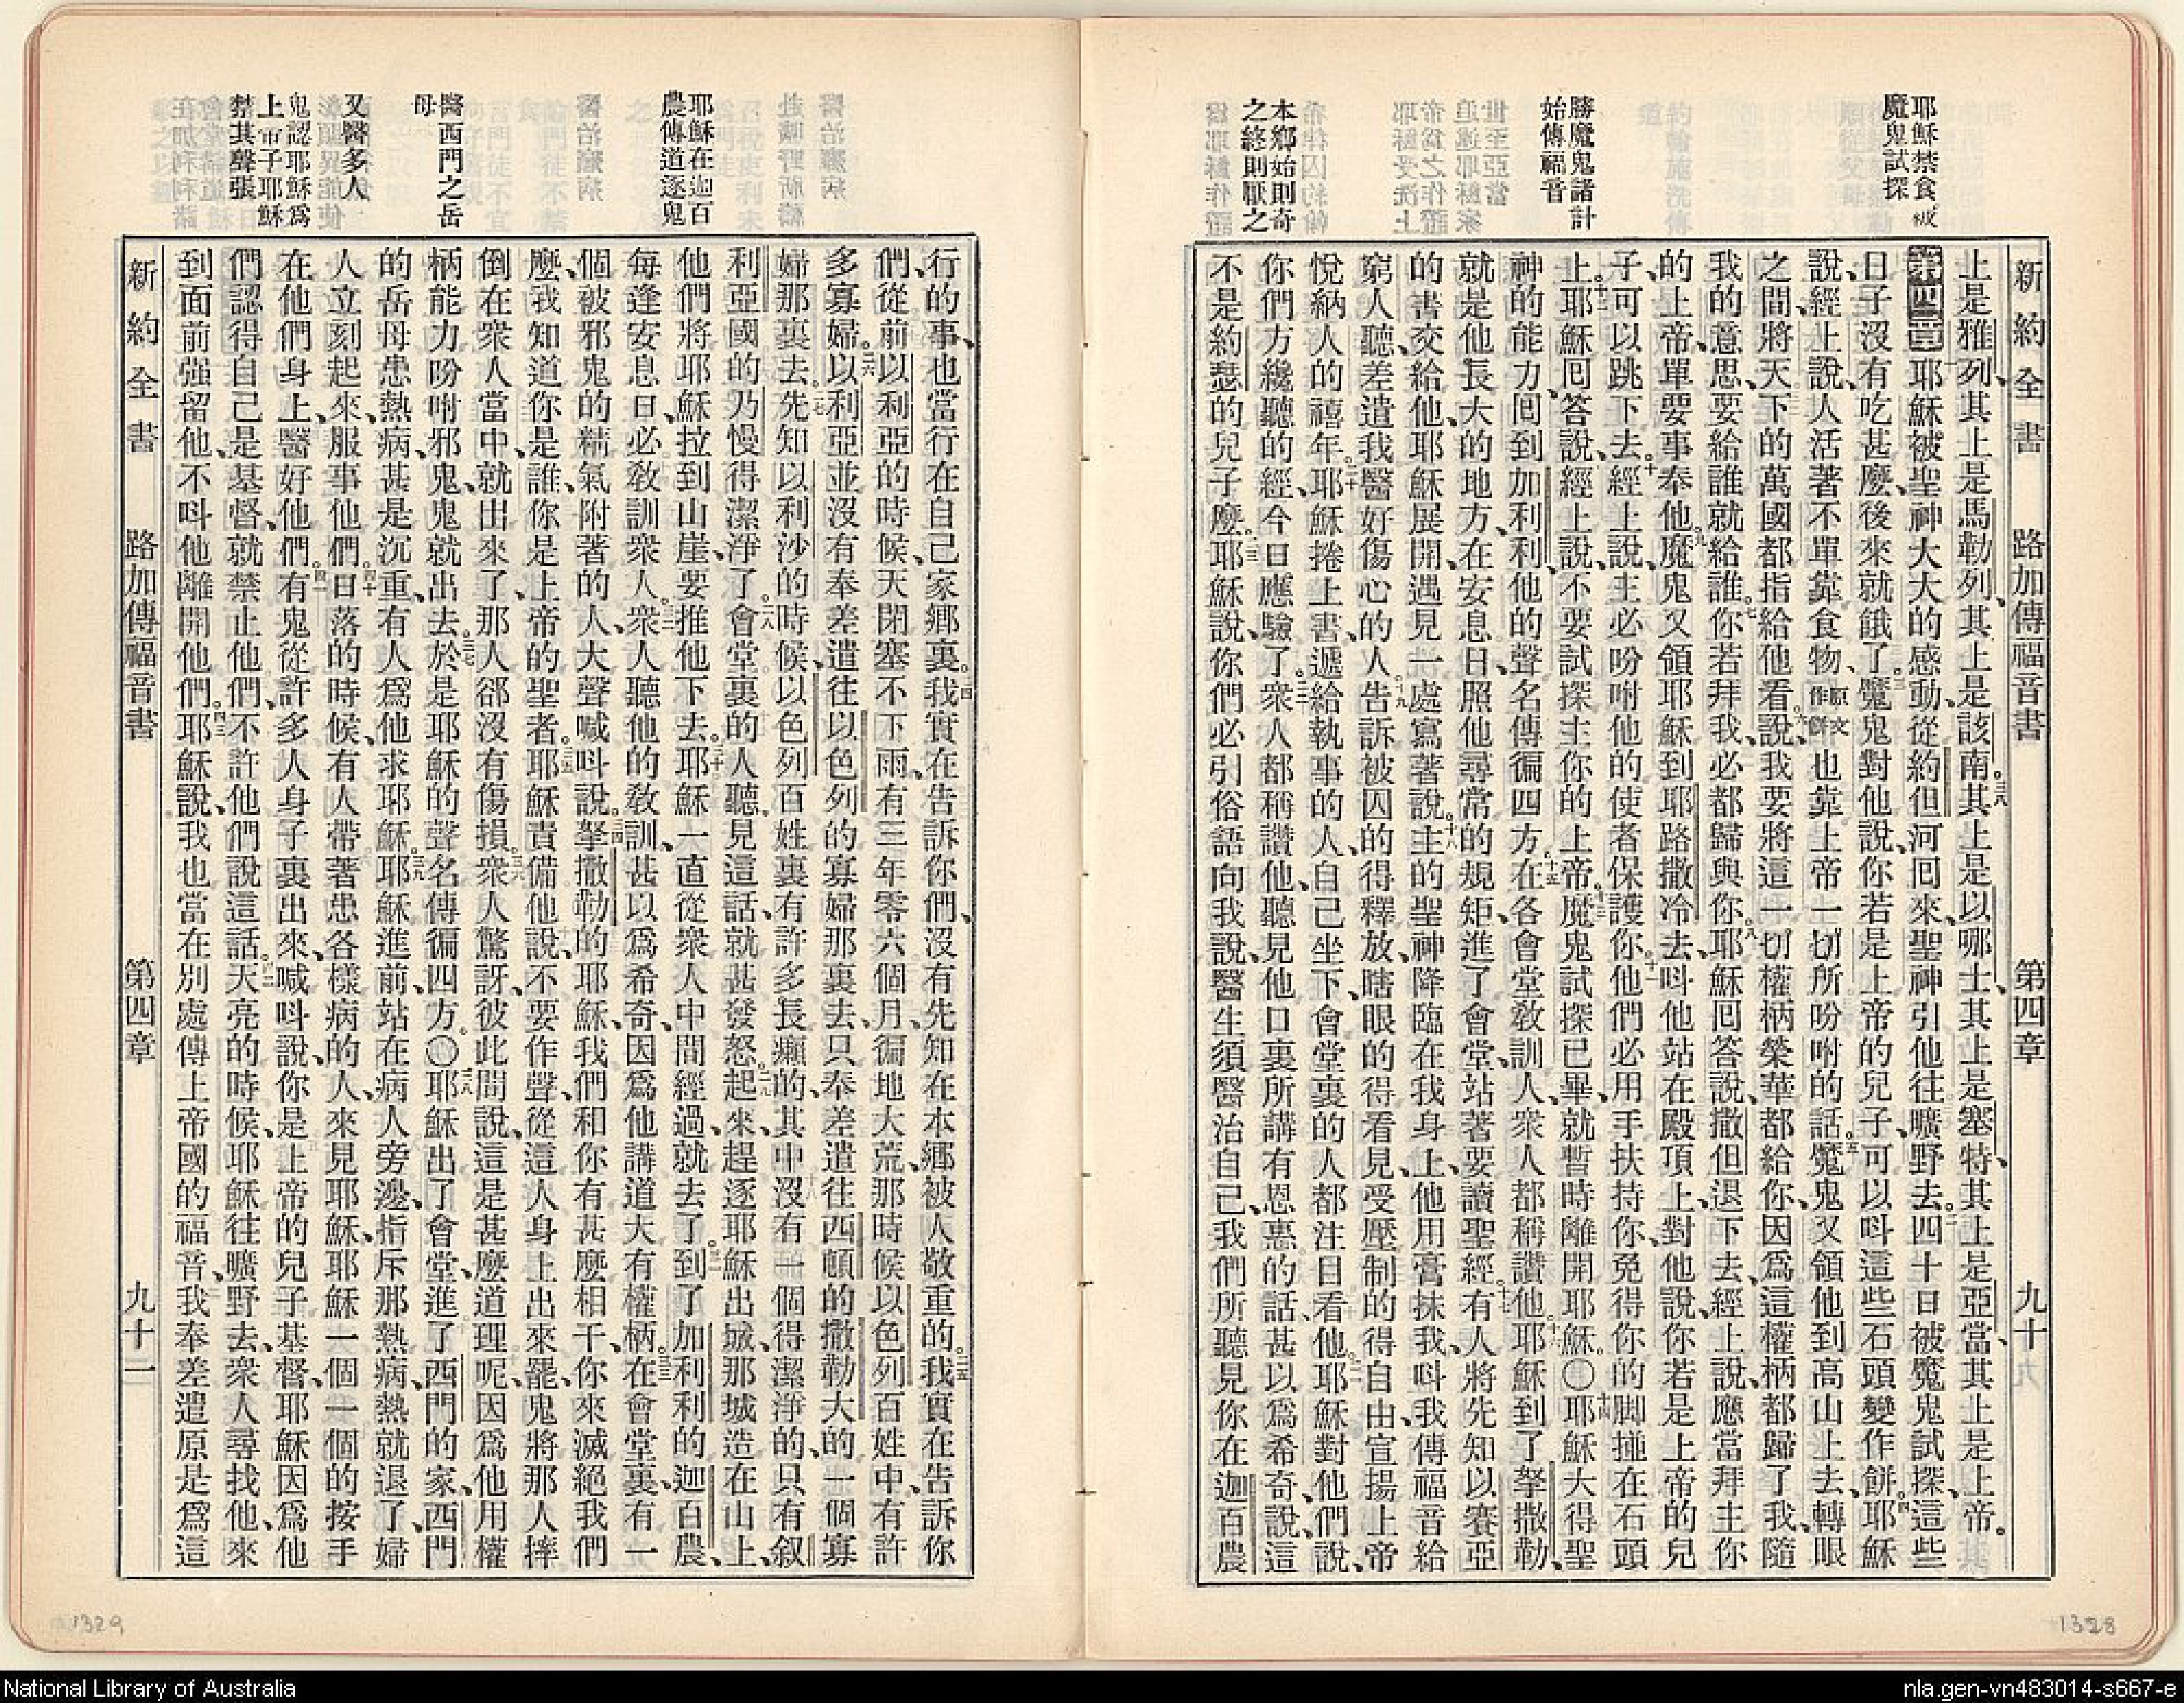 新約全書　路加傳福音書　第四章　九十
耶穌禁食被
魔鬼試探
勝魔鬼諸計
始傳福音
本鄉始則奇
之終則厭之
上是雅列、其上是馬勒列、其上是該南。三八其上是以哪士、其上是塞特、其上是亞當、其上是上帝。
第四章 耶穌被聖神大大的感動、從約但河回來、聖神引他往曠野去。二四十日被魔鬼試探、這些
日子沒有吃甚麼、後來就餓了。三魔鬼對他說、你若是上帝的兒子、可以呌這些石頭變作餅。四耶穌
說、經上說、人活著不單靠食物、原文作餅也靠上帝一切所吩咐的話。五魔鬼又領他到高山上去、轉眼
之間、將天下的萬國都指給他看。六說、我要將這一切權柄榮華都給你、因爲這權柄都歸了我、隨
我的意思、要給誰就給誰。七你若拜我、必都歸與你。八耶穌回答說、撒但退下去、經上說、應當拜主你
的上帝、單要事奉他。九魔鬼又領耶穌到耶路撒冷去、呌他站在殿頂上、對他說、你若是上帝的兒
子、可以跳下去。十經上說、主必吩咐他的使者保護你。十一他們必用手扶持你、免得你的脚搥在石頭
上。十二耶穌回答說、經上說、不要試探主你的上帝。十三魔鬼試探已畢、就暫時離開耶穌。〇十四耶穌大得聖
神的能力、回到加利利、他的聲名傳徧四方。十五在各會堂敎訓人、衆人都稱讚他。十六耶穌到了拏撒勒、
就是他長大的地方、在安息日、照他尋常的規矩、進了會堂、站著要讀聖經。十七有人將先知以賽亞
的書交給他、耶穌展開、遇見一處寫著說。十八主的聖神降臨在我身上、他用膏抹我、呌我傳福音給
窮人聽、差遣我醫好傷心的人。十九告訴被囚的得釋放、瞎眼的得看見、受壓制的得自由、宣揚上帝
悅納人的禧年。二十耶穌捲上書、遞給執事的人、自己坐下、會堂裏的人都注目看他。二一耶穌對他們說、
你們方纔聽的經、今日應驗了。二二衆人都稱讚他、聽見他口裏所講有恩惠的話、甚以爲希奇、說、這
不是約瑟的兒子麼。二三耶穌說、你們必引俗語向我說、醫生須醫治自己、我們所聽見你在迦百農
1328
新約全書　路加傳福音書　第四章　九十一
耶穌在迦百
農傳道逐鬼
醫西門之岳
母
又醫多人
鬼認耶穌爲
上帝子耶穌
禁其聲張
行的事、也當行在自己家鄉裏。二四我實在告訴你們、沒有先知在本鄉被人敬重的。二五我實在告訴你
們、從前以利亞的時候、天閉塞不下雨、有三年零六個月、徧地大荒、那時候以色列百姓中、有許
多寡婦。二六以利亞並沒有奉差遣往以色列的寡婦那裏去、只奉差遣往西頓的撒勒大的一個寡
婦那裏去。二七先知以利沙的時候、以色列百姓裏有許多長癩的、其中沒有一個得潔淨的、只有叙
利亞國的乃慢得潔淨了。二八會堂裏的人聽見這話、就甚發怒。二九起來、趕逐耶穌出城、那城造在山上、
他們將耶穌拉到山崖、要推他下去。三十耶穌一直從衆人中間經過、就去了。三一到了加利利的迦百農、
每逢安息日、必敎訓衆人。三二衆人聽他的敎訓、甚以爲希奇、因爲他講道大有權柄。三三在會堂裏、有一
個被邪鬼的精氣附著的人、大聲喊呌說。三四拏撒勒的耶穌、我們和你有甚麼相干、你來滅絕我們
麼、我知道你是誰、你是上帝的聖者。三五耶穌責備他說、不要作聲、從這人身上出來罷、鬼將那人摔
倒在衆人當中、就出來了、那人卻沒有傷損。三六衆人驚訝、彼此問說、這是甚麼道理呢、因爲他用權
柄能力吩咐邪鬼、鬼就出去。三七於是耶穌的聲名傳徧四方。〇三八耶穌出了會堂、進了西門的家、西門
的岳母患熱病、甚是沉重、有人爲他求耶穌。三九耶穌進前、站在病人旁邊、指斥那熱病、熱就退了、婦
人立刻起來、服事他們。四十日落的時候、有人帶著患各樣病的人來見耶穌、耶穌一個一個的按手
在他們身上、醫好他們。四一有鬼從許多人身子裏出來、喊呌說、你是上帝的兒子基督、耶穌因爲他
們認得自己是基督、就禁止他們、不許他們說這話。四二天亮的時候、耶穌往曠野去、衆人尋找他、來
到面前强留他、不呌他離開他們。四三耶穌說、我也當在別處傳上帝國的福音、我奉差遣原是爲這
1329
National Library of Australia
nla.gen-vn483014-s667-e